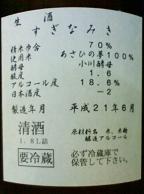 生 酒
すぎなみき
精米歩合 70%
使用米 あさひの夢100%
酵母 小川酵母
酸度 1.6
アルコール度 18.6%
日本酒度 -2
製造年月 平成21年6月
清酒
1.8L詰
原材料名 米、米麹
醸造アルコール
要冷蔵
必ず冷蔵庫で
保管して下さい。